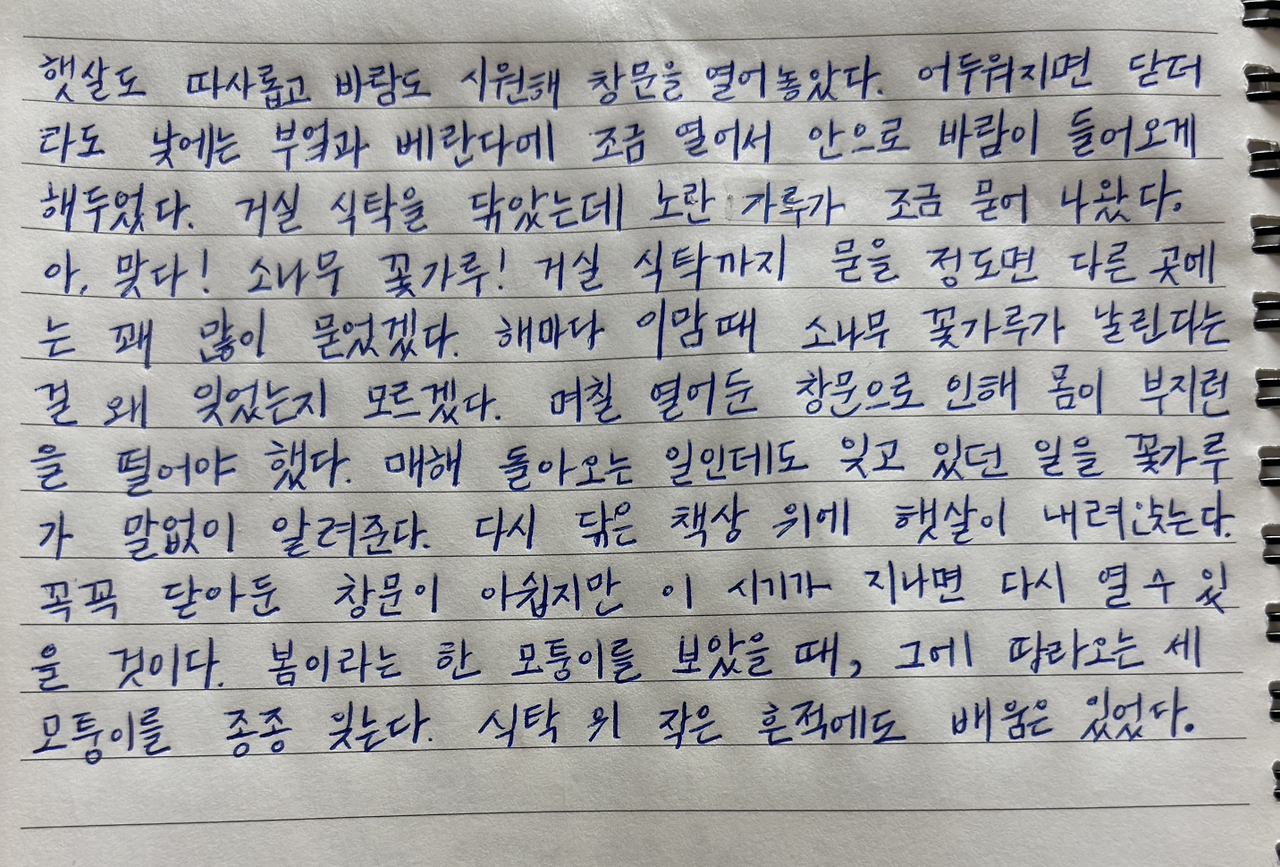 햇살도 따사롭고 바람도 시원해 창문을 열어놓았다. 어두워지면 닫더
라도 낮에는 부엌과 베란다에 조금 열어서 안으로 바람이 들어오게
해두었다. 거실 식탁을 닦았는데 노란 가루가 조금 묻어 나왔다.
아, 맞다! 소나무 꽃가루! 거실 식탁까지 묻을 정도면 다른 곳에
는 꽤 많이 묻었겠다. 해마다 이맘때 소나무 꽃가루가 날린다는
걸 왜 잊었는지 모르겠다. 며칠 열어둔 창문으로 인해 몸이 부지런
을 떨어야 했다. 매해 돌아오는 일인데도 잊고 있던 일을 꽃가루
가 말없이 알려준다. 다시 닦은 책상 위에 햇살이 내려앉는다.
꼭꼭 닫아둔 창문이 아쉽지만 이 시기가 지나면 다시 열 수 있
을 것이다. 봄이라는 한 모퉁이를 보았을 때, 그에 따라오는 세
모퉁이를 종종 잊는다. 식탁 위 작은 흔적에도 배움은 있었다.